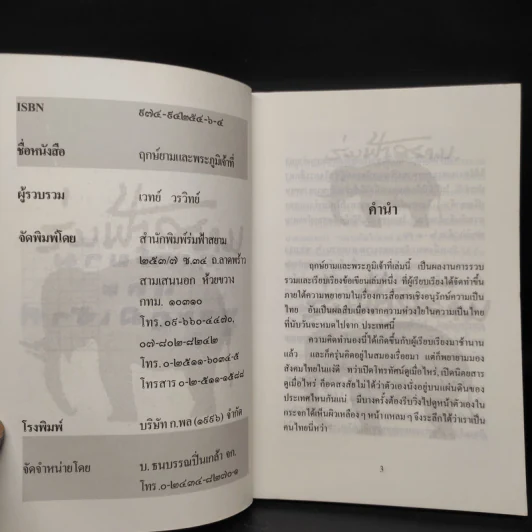 ISBN ๙๗๔-๙๔๒๕๔-๖-๔
ชื่อหนังสือ ฤกษ์ยามและพระภูมิเจ้าที่
ผู้รวบรวม เวทย์ วรวิทย์
จัดพิมพ์โดย สำนักพิมพ์ร่มฟ้าสยาม
๒๕๓/๗ ซ.๓๔ ถ.ลาดพร้าว
สามเสนนอก ห้วยขวาง
กทม. ๑๐๓๑๐
โทร. ๐๙-๖๖๐-๔๔๗๐,
๐๗-๘๐๒-๘๒๔๒
โทร. ๐-๒๕๑๑-๖๐๓๔-๕
โทรสาร ๐-๒-๕๑๑-๑๕๘๘
โรงพิมพ์ บริษัท ก.พล (๑๙๙๖) จำกัด
จัดจำหน่ายโดย บ. ธนบรรณปิ่นเกล้า จก.
โทร. ๐-๒๔๓๔-๘๒๗๐-๑
คำนำ
ฤกษ์ยามและพระภูมิเจ้าที่เล่มนี้ เป็นผลงานการรวบ
รวมและเรียบเรียงข้อเขียนเล่มหนึ่ง ที่ผู้เรียบเรียงได้จัดทำขึ้น
ภายใต้ความพยายามในเรื่องการสื่อสารเชิงอนุรักษ์ความเป็น
ไทย อันเป็นผลสืบเนื่องจากความห่วงใยในความเป็นไทย
ที่นับวันจะหมดไปจาก ประเทศนี้
ความคิดทำนองนี้ได้เกิดขึ้นกับผู้เรียบเรียงมาช้านาน
แล้ว และก็ครุ่นคิดอยู่ในสมองเรื่อยมา แต่ก็พยายามมอง
สังคมไทยในแง่ดี ทว่าเปิดโทรทัศน์ดูเมื่อไหร่, เปิดนิตยสาร
ดูเมื่อไหร่ ก็อดสงสัยไม่ได้ว่าตัวเองนั่งอยู่บนแผ่นดินของ
ประเทศไหนกันแน่ มีบางครั้งต้องรีบวิ่งไปดูหน้าตัวเองใน
กระจกได้เห็นผิวเหลือง ๆ หน้าแหลม ๆ จึงระลึกได้ว่าเราเป็น
คนไทยนี่หว่า
3